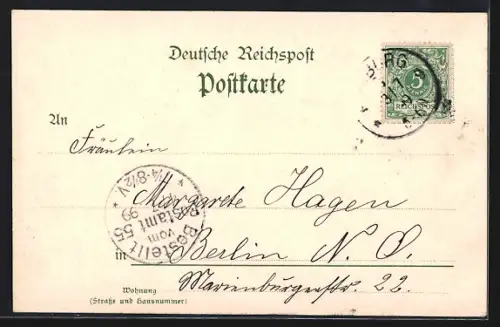 Deutsche Reichspost
Postkarte
BURG
5
REICHSPOST
An
Fräulein
Margarete Hagen
in Berlin N. O.
Marienburgerstr. 22.
Bestellt
vom
Postamt 55
99
¼-8½V.
Wohnung
(Straße und Hausnummer)